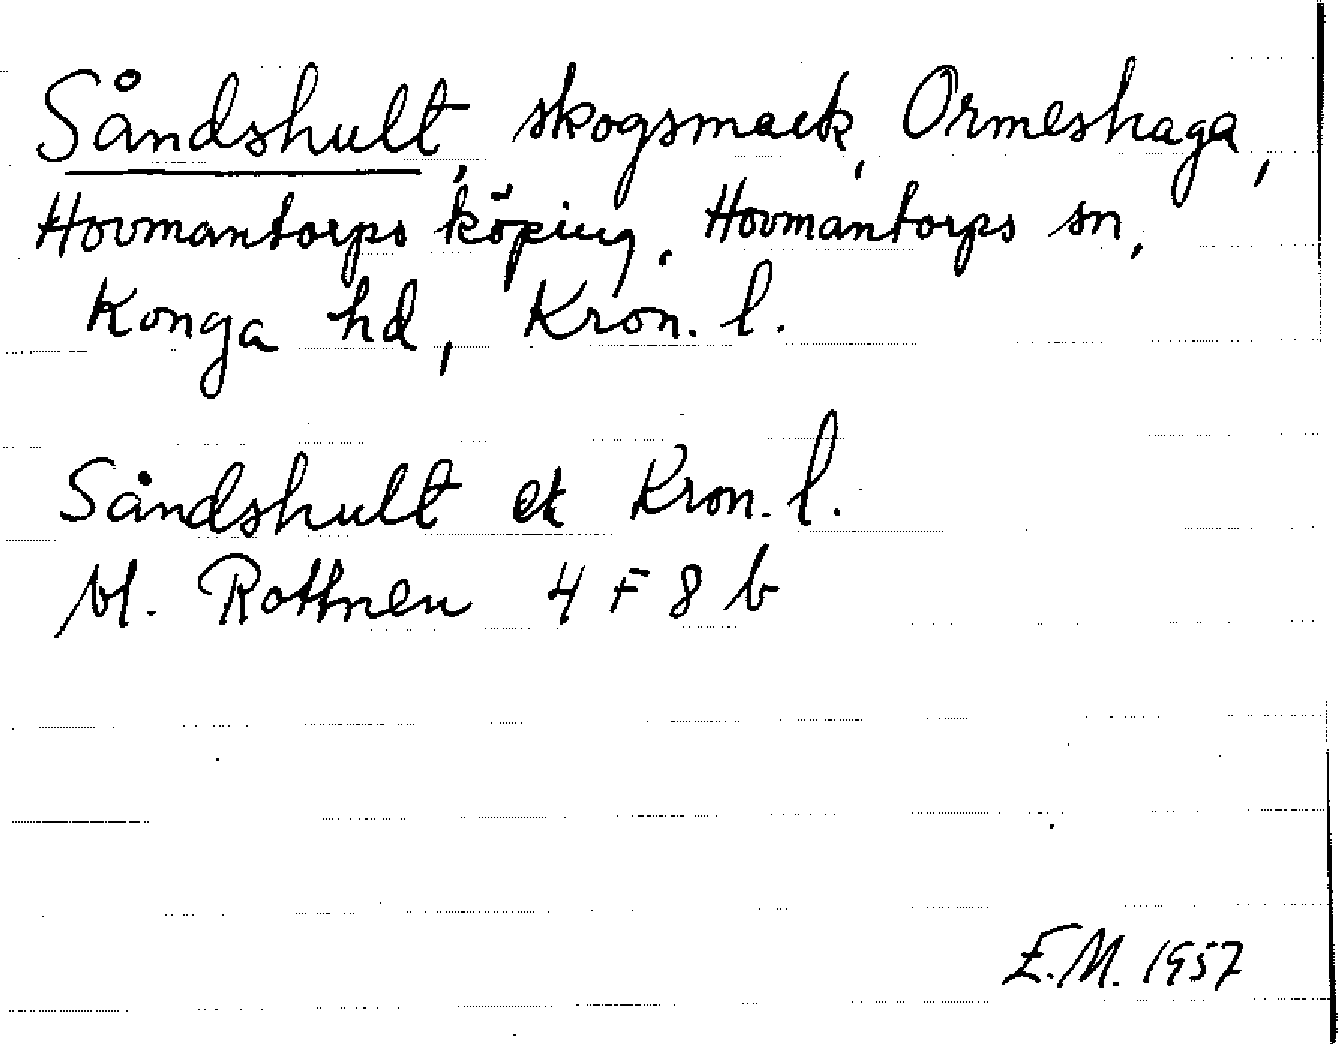 Såndshult, skogsmark, Ormeshaga,
Hovmantorps köping, Hovmantorps sn,
Konga hd, Kron. l.
Såndshult ek Kron. l.
bl. Rottnen 4 F 8 b
E.M. 1957